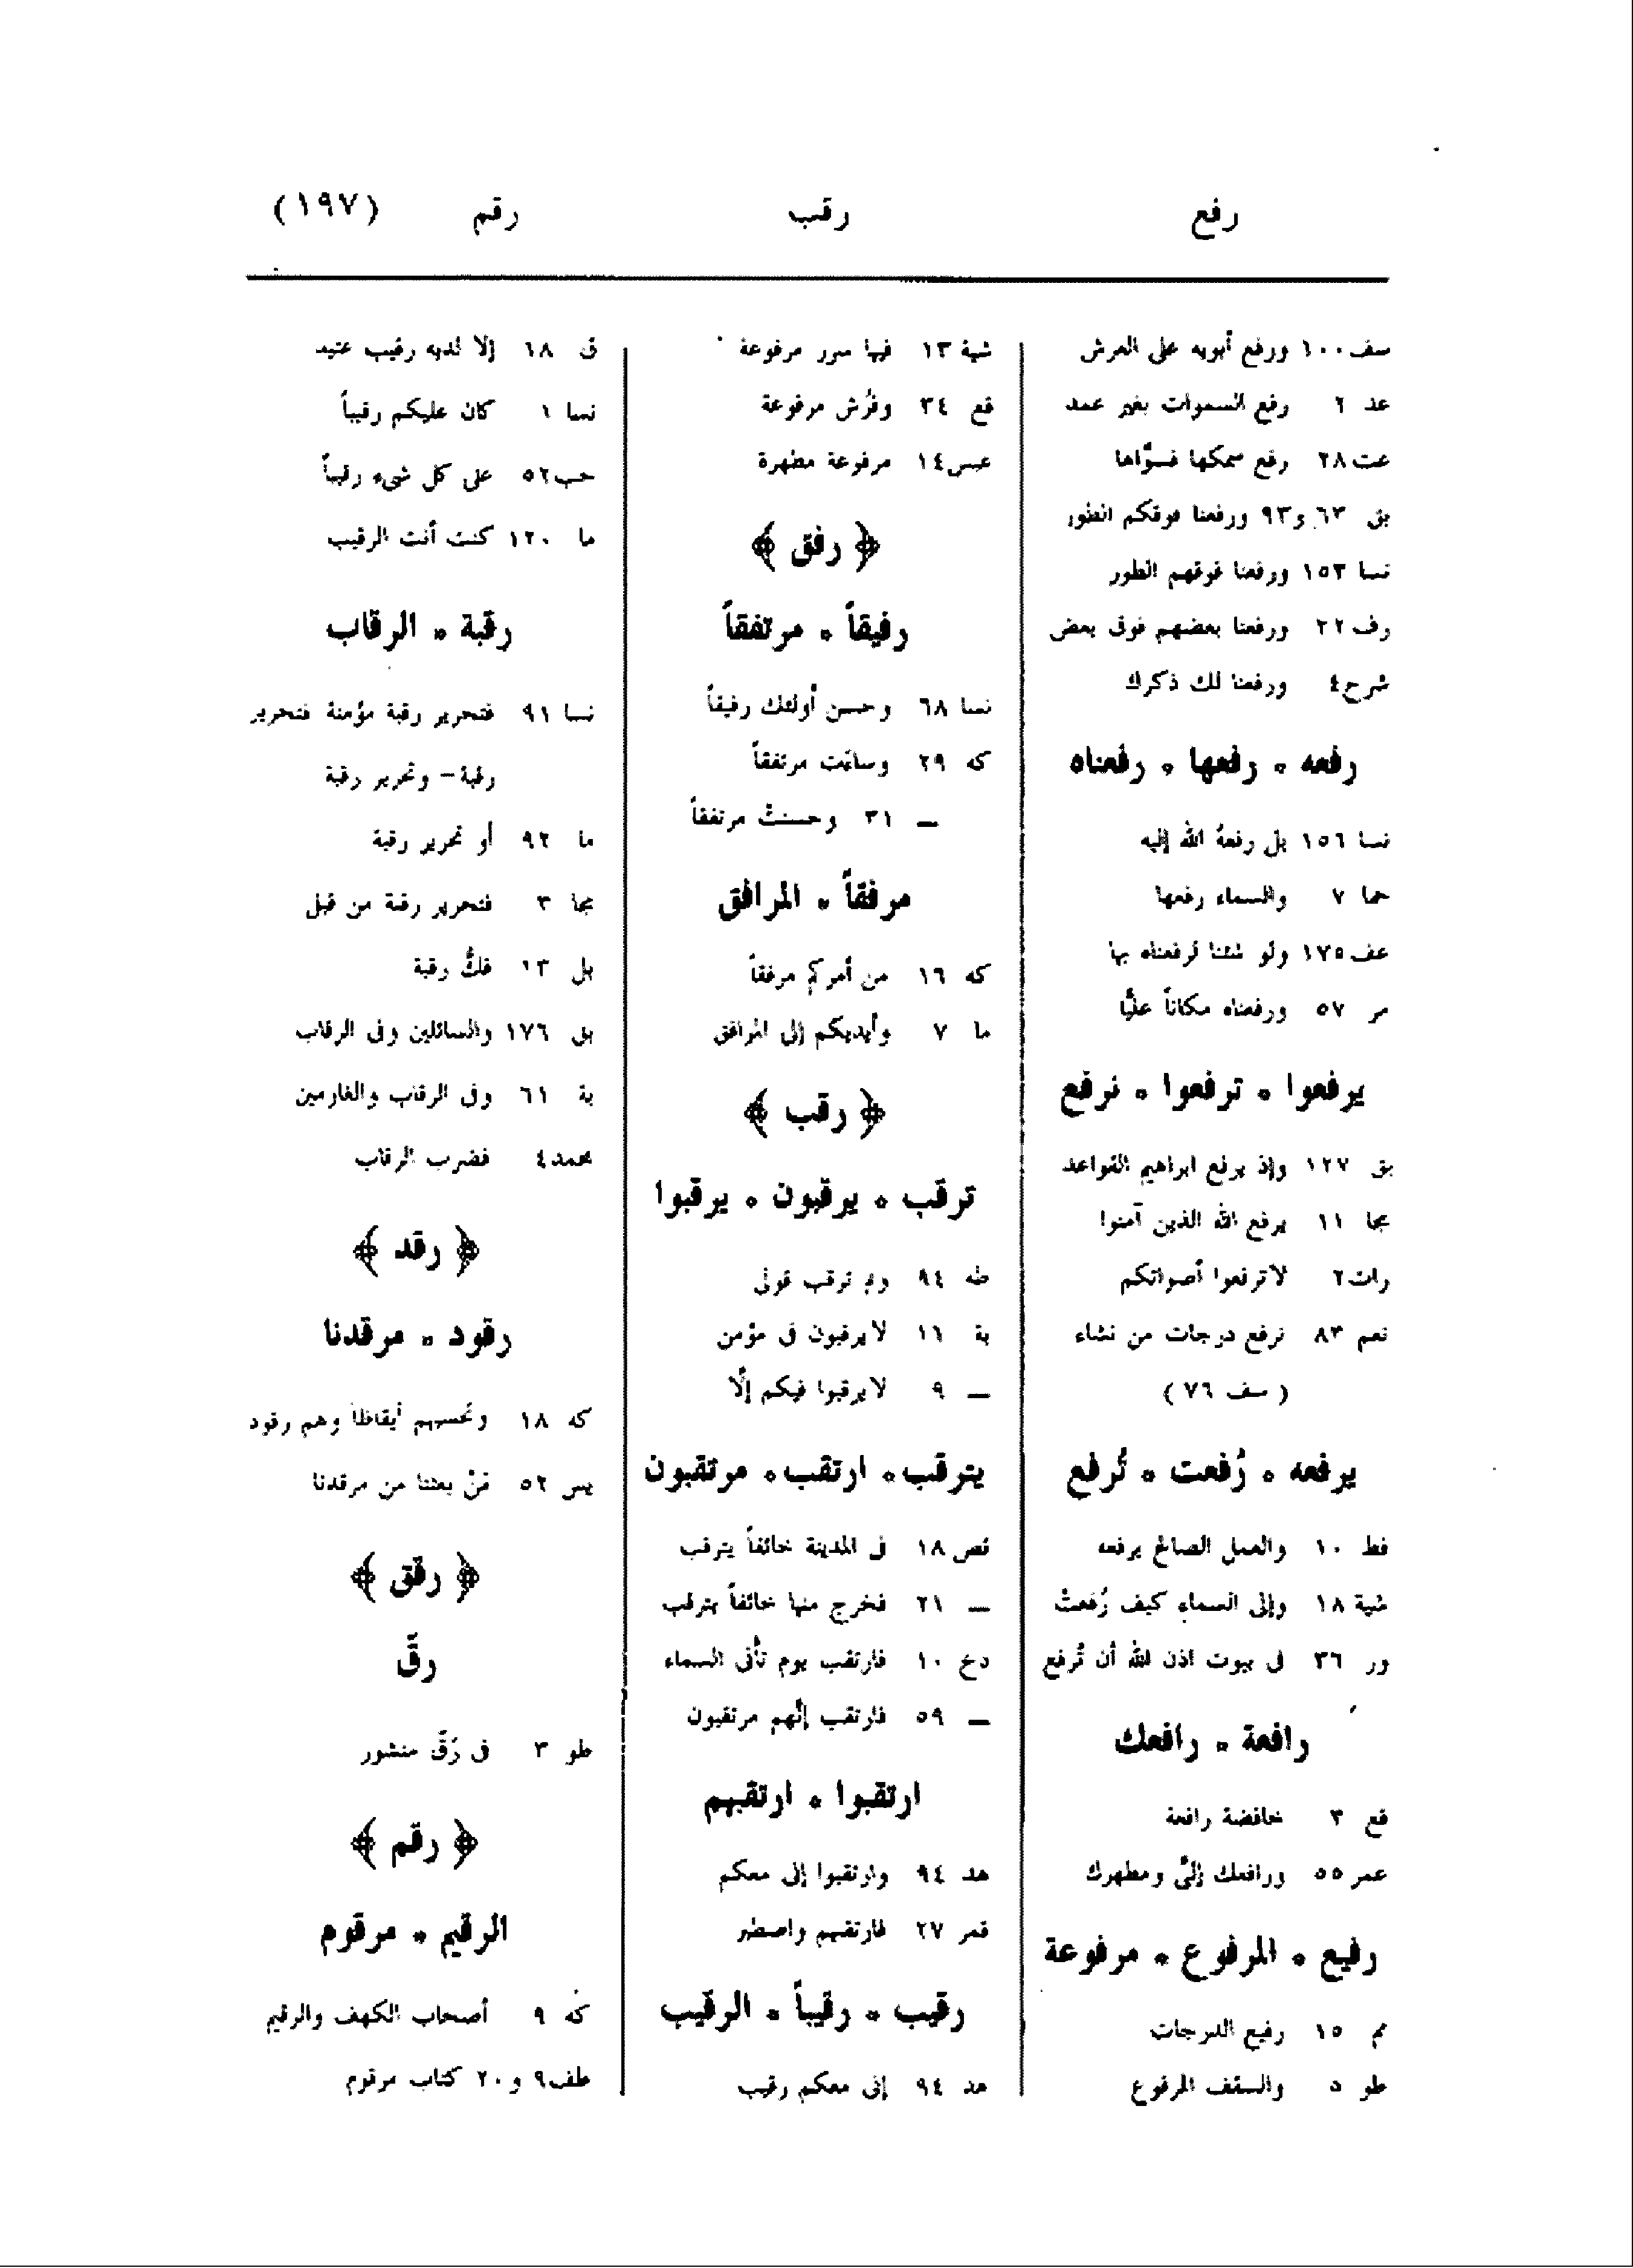 رفع رقب رقم (١٩٧)
سف ١٠٠ ورفع أبويه على العرش
عد ٢ رفع السموات بغير عمد
عت ٢٨ رفع سمكها فسوّاها
بق ٦٣ و٩٣ ورفعنا فوقكم الطور
نسا ١٥٣ ورفعنا فوقهم الطور
رف ٢٢ ورفعنا بعضهم فوق بعض
شرح ٤ ورفعنا لك ذكرك
رفعه * رفعها * رفعناه
نسا ١٥٦ بل رفعهُ الله إليه
حما ٧ والسماء رفعها
عف ١٧٥ ولو شئنا لرفعناه بها
مر ٥٧ ورفعناه مكاناً عليًّا
يرفعوا * ترفعوا * نرفع
بق ١٢٧ وإذ يرفع ابراهيم القواعد
مجا ١١ يرفع الله الذين آمنوا
رات ٢ لا ترفعوا أصواتكم
نعم ٨٣ نرفع درجات من نشاء
( سف ٧٦ )
يرفعه * رُفعت * تُرفع
فط ١٠ والعمل الصالح يرفعه
شية ١٨ وإلى السماء كيف رُفعتْ
ور ٣٦ فى بيوت اذن الله أن تُرفع
رافعة * رافعك
قع ٣ خافضة رافعة
عمر ٥٥ ورافعك إلىَّ ومطهرك
رفيع * المرفوع * مرفوعة
مم ١٥ رفيع الدرجات
طو ٥ والسقف المرفوع
شية ١٣ فيها سرر مرفوعة
قع ٣٤ وفُرُش مرفوعة
عبس ١٤ مرفوعة مطهرة
﴿ رفق ﴾
رفيقاً * مرتفقاً
نسا ٦٨ وحسن أولئك رفيقاً
كه ٢٩ وساءَت مرتفقاً
ــ ٣١ وحسنتْ مرتفقاً
مرفقاً * المرافق
كه ١٦ من أمركم مرفقاً
ما ٧ وأيديكم إلى المرافق
﴿ رقب ﴾
ترقب * يرقبون * يرقبوا
طه ٩٤ ولم ترقب قولى
بة ١١ لا يرقبون فى مؤمن
ــ ٩ لا يرقبوا فيكم إلَّا
يترقب * ارتقب * مرتقبون
قص ١٨ فى المدينة خائفاً يترقب
ــ ٢١ فخرج منها خائفاً يترقب
دخ ١٠ فارتقب يوم تأتى السماء
ــ ٥٩ فارتقب إنَّهم مرتقبون
ارتقبوا * ارتقبهم
هد ٩٤ وارتقبوا إنى معكم
قمر ٢٧ فارتقبهم واصطبر
رقيب * رقيباً * الرقيب
هد ٩٤ إنى معكم رقيب
ق ١٨ إلا لديه رقيب عتيد
نسا ١ كان عليكم رقيباً
حب ٥٢ على كل شىء رقيباً
ما ١٢٠ كنت أنت الرقيب
رقبة * الرقاب
نسا ٩١ فتحرير رقبة مؤمنة فتحرير
رقبة – وتحرير رقبة
ما ٩٢ أو تحرير رقبة
مجا ٣ فتحرير رقبة من قبل
بل ١٣ فكُّ رقبة
بق ١٧٦ والسائلين وفى الرقاب
بة ٦١ وفى الرقاب والغارمين
محمد ٤ فضرب الرقاب
﴿ رقد ﴾
رقود * مرقدنا
كه ١٨ وتحسبهم أيقاظاً وهم رقود
يس ٥٢ مَنْ بعثنا من مرقدنا
﴿ رقق ﴾
رقّ
طو ٣ فى رَقّ منشور
﴿ رقم ﴾
الرقيم * مرقوم
كه ٩ أصحاب الكهف والرقيم
طف ٩ و٢٠ كتاب مرقوم